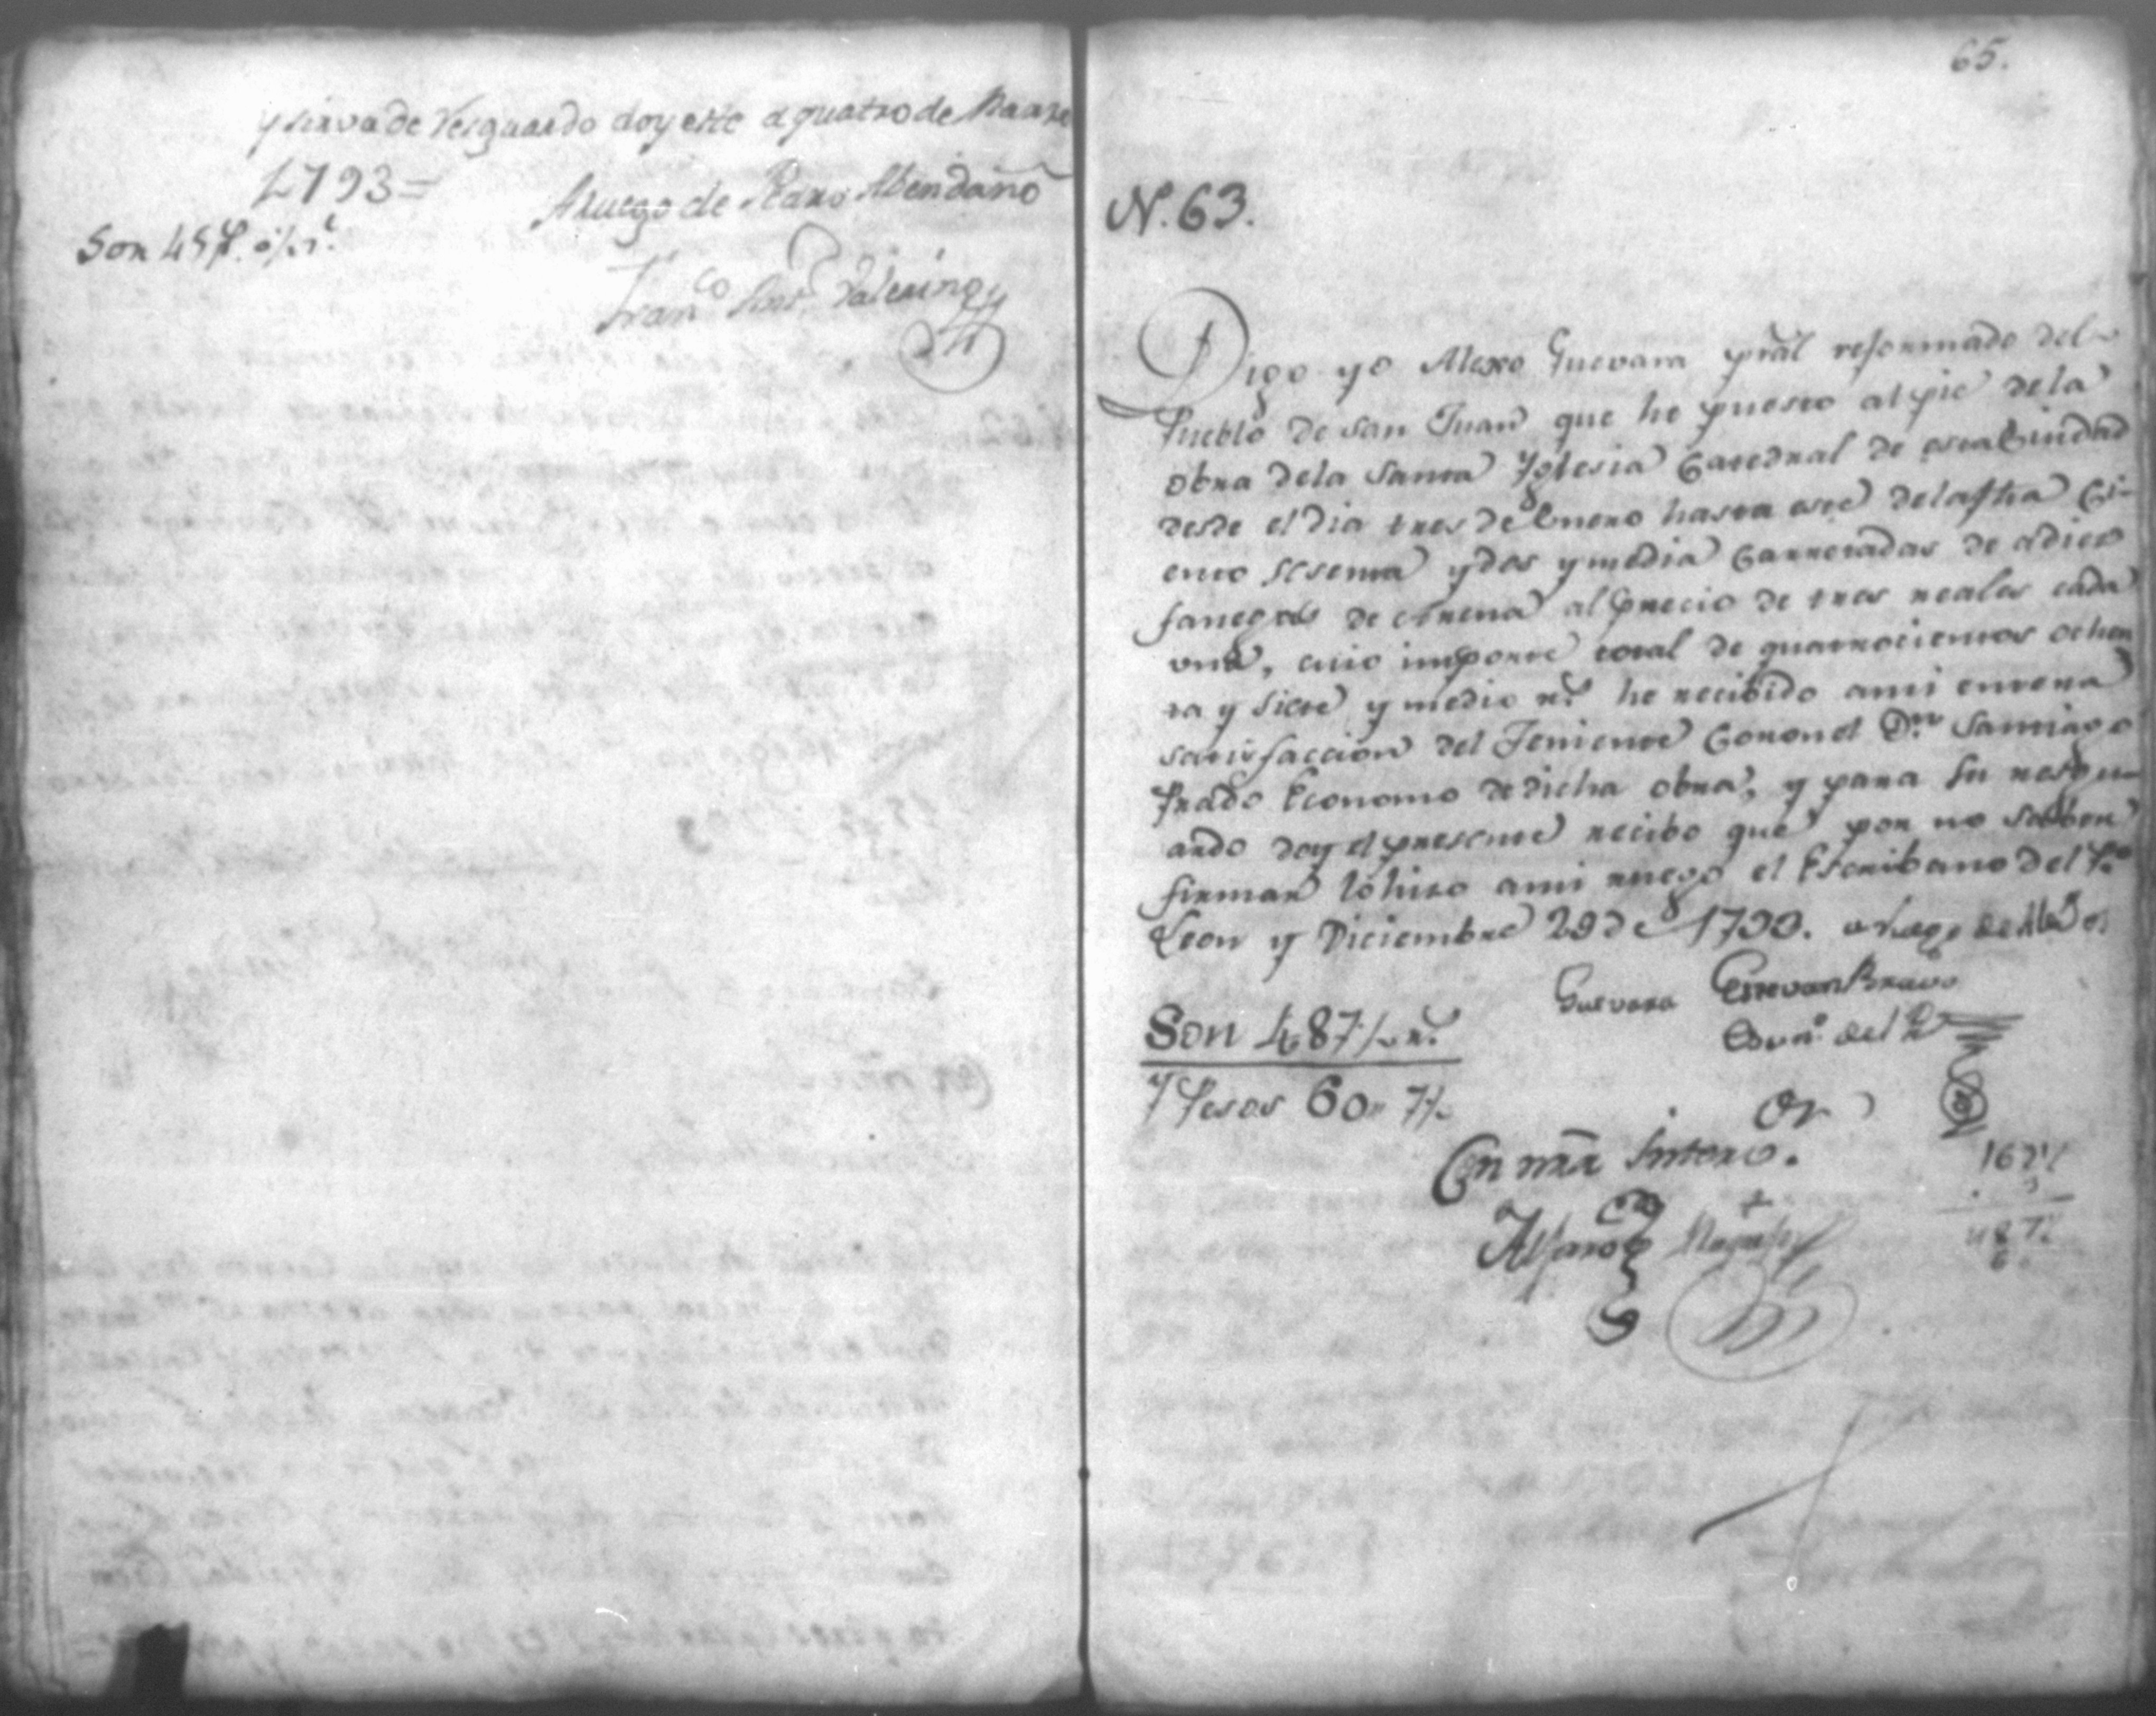 y sirva de resguardo doy este a quatro de Marzo
1793=
Aruego de Pedro Abendaño
Son 48 p.
Fran.co Ant.
65.
N. 63.
Digo yo Alexo Guevara pral reformado del
Pueblo de San Juan que he puesto al pie de la
obra dela Santa Yglesia Catedral de esta Ciudad
desde el dia tres de Enero hasta este dela fha Ci-
ento sesenta y dos y media Carretadas de a diez
fanegas de Arena al precio de tres reales cada
una, cuio importe total de quatrocientos ochen
ta y siete y medio r.s he recibido ami entera
satisfaccion del Teniente Coronel D.n Santiago
Prado Economo de dicha obra, y para su resgu-
ardo doy el presente recibo que por no saber
firmar lo hizo ami ruego el Escribano del P.o
Leon y Diciembre 29 de 1793. a Ruego de Alexo
Guevara Estevan Bravo
Son 487 1/2 r.s
Esvn.o del P.o
Y Pesos 60 " 7 1/2
Con mra Interv.
162 1/2
3
Alfaro
487 1/2
6